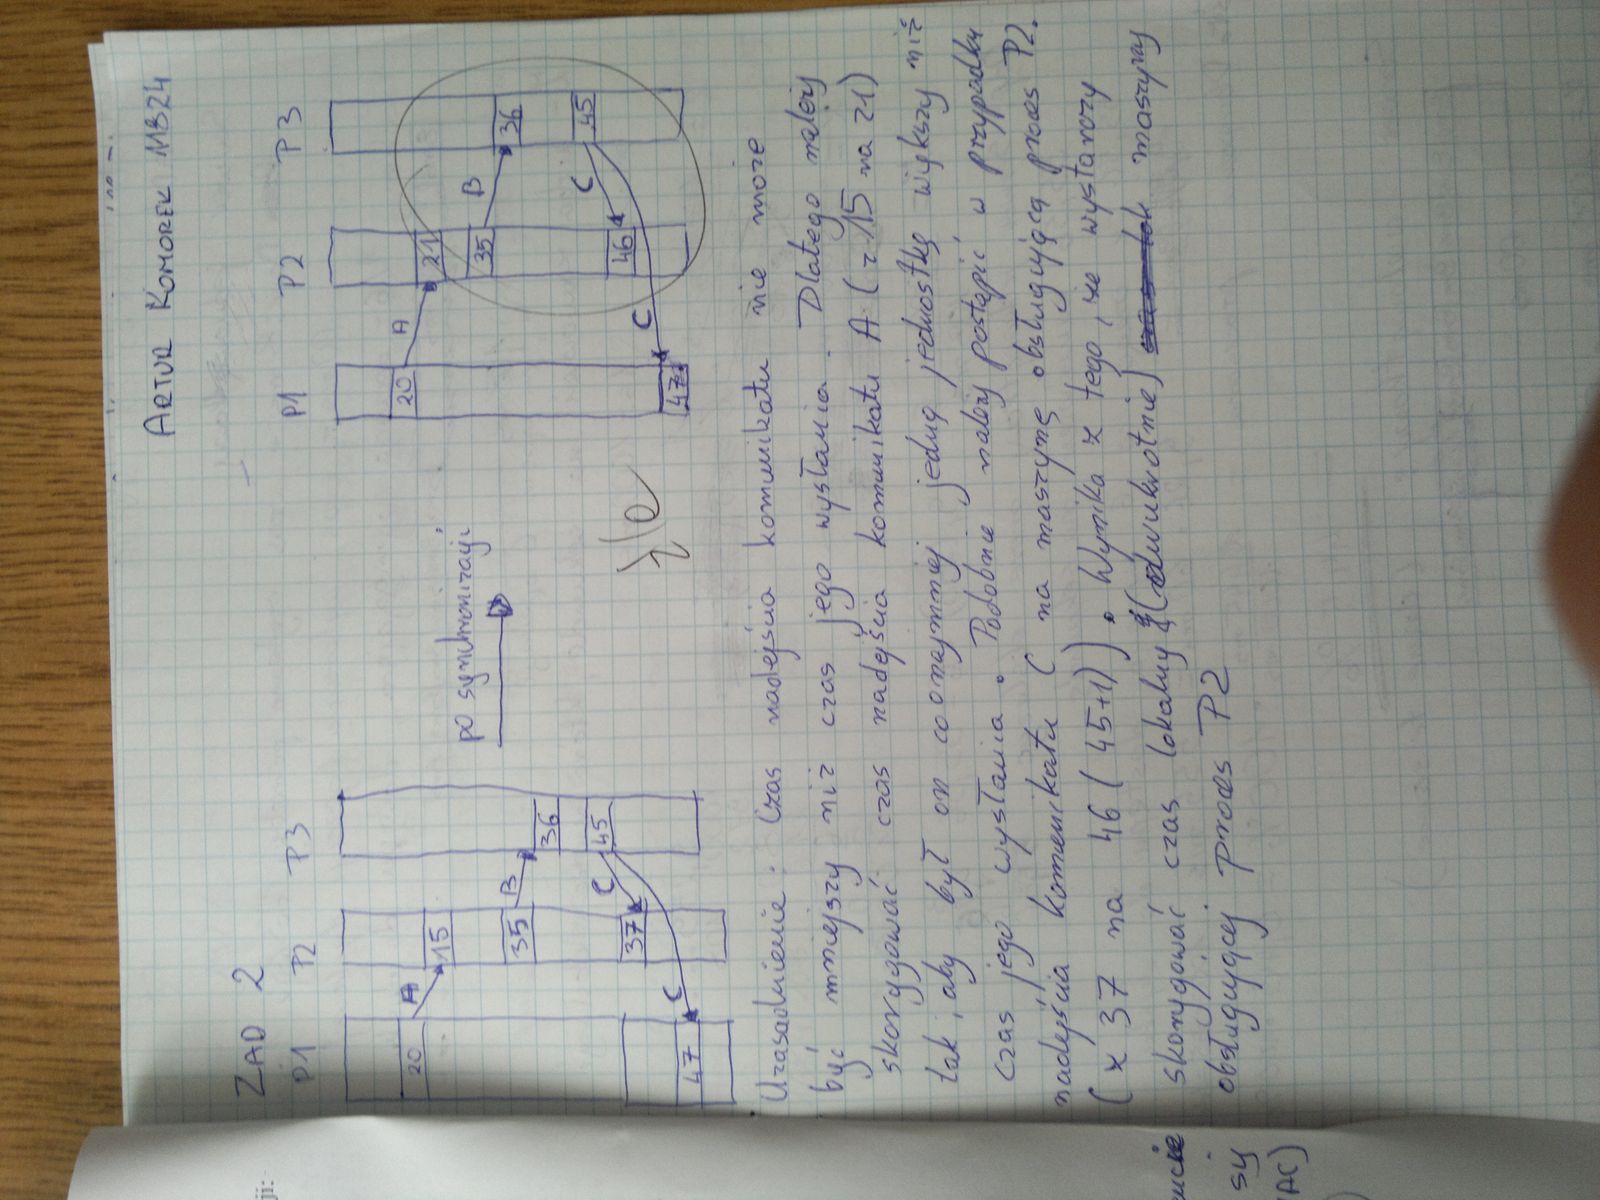 ji:
ARTUR KOMOREK 11824
ZAD 2
P1 P2 P3
20 A 15
35 B 36
45 C 37
C 47
po synchronizacji
P1 P2 P3
20 A 21
35 B 36
45 C 46
C 47
źle
Uzasadnienie: Czas nadejścia komunikatu nie może
być mniejszy niż czas jego wysłania. Dlatego należy
skorygować czas nadejścia komunikatu A (z 15 na 21)
tak, aby był on coonajmniej jedną jednostkę większy niż
czas jego wysłania. Podobnie należy postąpić w przypadku
nadejścia komunikatu C na maszynę obsługującą proces P2.
(z 37 na 46 (45+1)). Wynika z tego, że wystarczy
skorygować czas lokalny (dwukrotnie) maszyny
obsługującej proces P2
sij
AC)